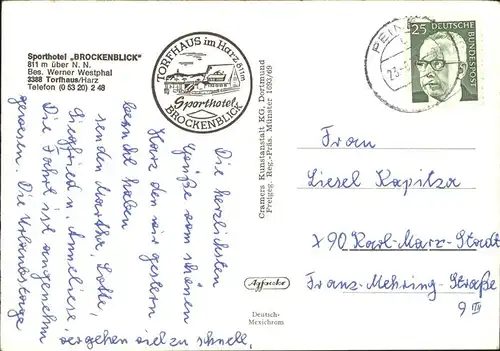 Sporthotel „BROCKENBLICK"
811 m über N. N.
Bes. Werner Westphal
3388 Torfhaus/Harz
Telefon (0 53 20) 2 48
TORFHAUS im Harz 811m
Sporthotel
BROCKENBLICK
Die herzlichsten
Grüße vom schönen
Harz den wir gestern
besucht haben
senden Martha, Lotte,
Siegfried u. Anneliese.
Die Fahrt ist angenehm
gewesen. Die Urlaubstage
vergehen viel zu schnell,
Cramers Kunstanstalt KG, Dortmund
Freigeg. Reg.-Präs. Münster 1093/69
Deutsch-
Mexichrom
PEINE
25
DEUTSCHE
BUNDESPOST
Frau
Liesel Kapitza
X90 Karl-Marx-Stadt
Franz-Mehring-Straße
9 III